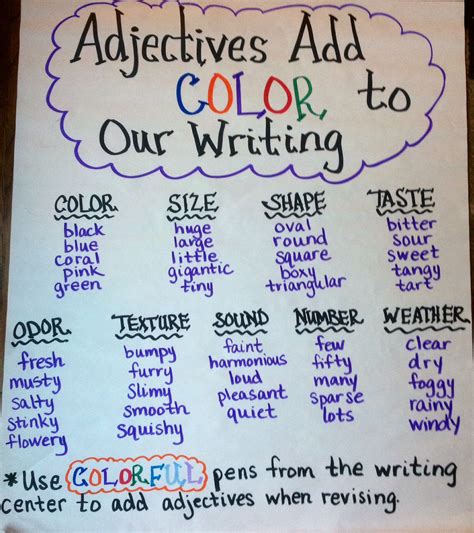 Adjectives Add
COLOR to
Our Writing
COLOR
black
blue
coral
pink
green
SIZE
huge
large
little
gigantic
tiny
SHAPE
oval
round
square
boxy
triangular
TASTE
bitter
sour
sweet
tangy
tart
ODOR
fresh
musty
salty
stinky
flowery
TEXTURE
bumpy
furry
slimy
smooth
squishy
SOUND
faint
harmonious
loud
pleasant
quiet
NUMBER
few
fifty
many
sparse
lots
WEATHER
clear
dry
foggy
rainy
windy
*Use COLORFUL pens from the writing
center to add adjectives when revising.